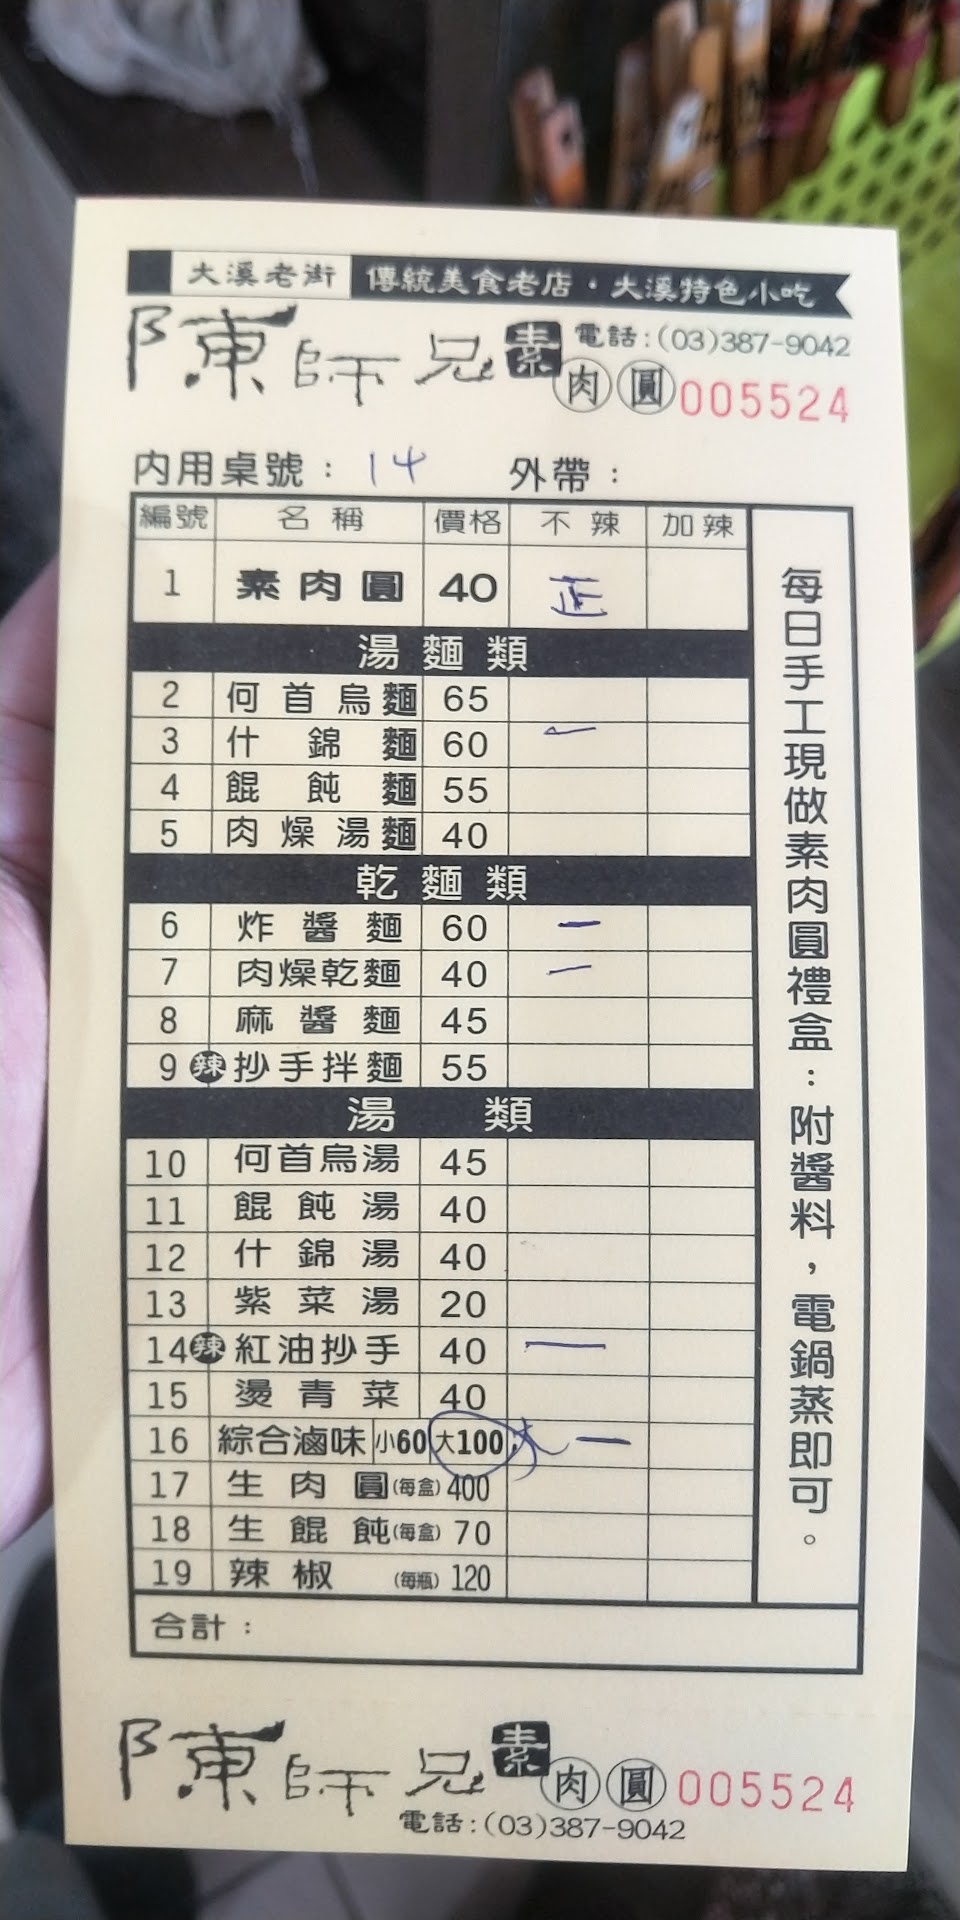 大溪老街 傳統美食老店・大溪特色小吃
陳師兄素肉圓 電話:(03)387-9042
005524
內用桌號： 14 外帶：
編號 名稱 價格 不辣 加辣
1 素肉圓 40 正
湯麵類
2 何首烏麵 65
3 什錦麵 60 一
4 餛飩麵 55
5 肉燥湯麵 40
乾麵類
6 炸醬麵 60 一
7 肉燥乾麵 40 一
8 麻醬麵 45
9 辣 抄手拌麵 55
湯類
10 何首烏湯 45
11 餛飩湯 40
12 什錦湯 40
13 紫菜湯 20
14 辣 紅油抄手 40 一
15 燙青菜 40
16 綜合滷味 小60 大100 大 一
17 生肉圓(每盒) 400
18 生餛飩(每盒) 70
19 辣椒 (每瓶) 120
合計：
每日手工現做素肉圓禮盒：附醬料，電鍋蒸即可。
陳師兄素肉圓 005524
電話:(03)387-9042